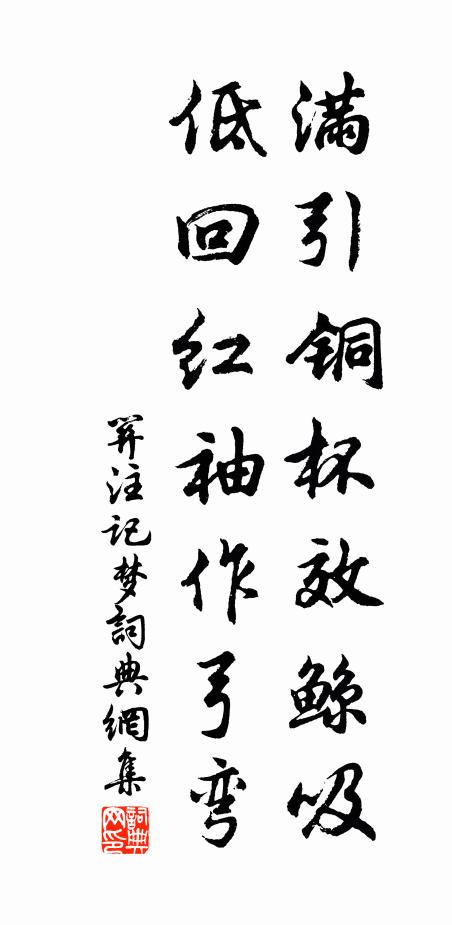 满引铜杯效鲸吸
低回红袖作弓弯
羿注记梦词典網集
词典网印